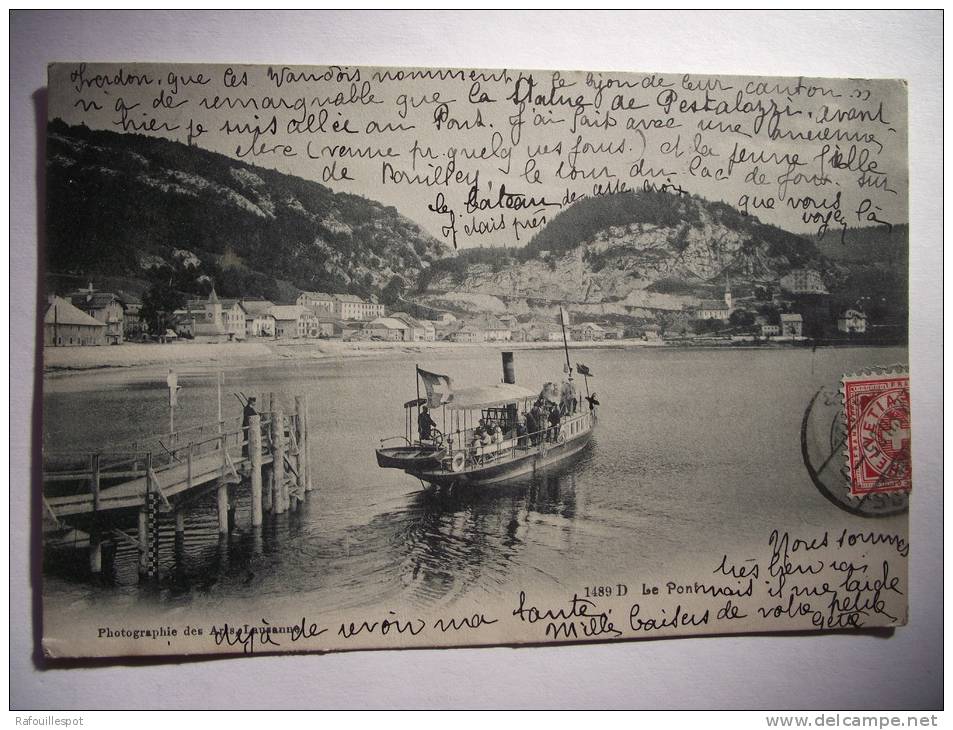 Yverdon, que les Vaudois nomment « le bijou de leur canton »
n'a de remarquable que la Statue de Pestalozzi, avant
hier je suis allée au Pont. J'ai fait avec une ancienne
élève (venue pr. quelques jours) et la jeune fille
de Romilley le tour du lac de Joux sur
le bâteau de cette croix que vous
j'étais près voyez là
HELVETIA
Nous sommes
très bien ici
1489 D Le Pont mais il me tarde
déjà de revoir ma tante
Mille baisers de votre petite
Photographie des Arts, Lausanne
Rafouillespot
www.delcampe.net